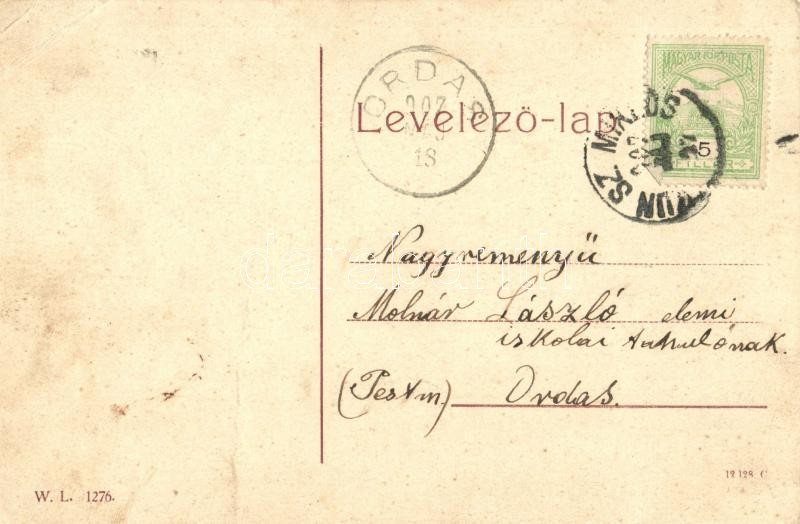 ORDAS
907
18
Levelező-lap.
MAGYAR KIR. POSTA
5
FILLÉR
KUN SZ MIKLÓS
Nagyreményü
Molnár László elemi
iskolai tanulónak.
(Pestm) Ordas.
W. L. 1276.
12 128 C